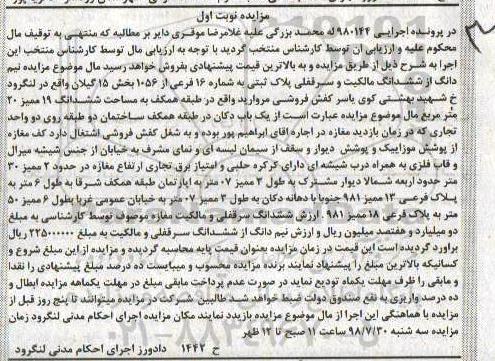 مزایده نوبت اول
در پرونده اجرایی ۹۸۰۱۴۲ له محمد بزرگی علیه غلامرضا موقری دایر بر مطالبه که منتهی به توقیف مال
محکوم علیه و ارزیابی ان توسط کارشناس منتخب گردید با توجه به ارزیابی مال توسط کارشناس منتخب این
اجرا به شرح ذیل از طریق مزایده و به بالاترین قیمت پیشنهادی بفروش خواهد رسید مال موضوع مزایده نیم
دانگ از ششدانگ مالکیت و سرقفلی پلاک ثبتی به شماره ۱۶ فرعی از ۱۰۵۶ بخش ۱۵ گیلان واقع در لنگرود
خ شهید بهشتی کوی یاسر کفش فروشی مروارید واقع در طبقه همکف به مساحت ششدانگ ۱۹ ممیز ۲۰
متر مربع مال موضوع مزایده عبارت است از یک باب دکان در طبقه همکف ساختمان دو طبقه روی دو واحد
تجاری که در زمان بازدید مغازه در اجاره اقای ابراهیم پور بوده و به شغل کفش فروشی اشتغال دارد کف مغازه
از پوشش موزاییک و پوشش دیوار و سقف از سیمان لیسه ای و نمای مشرف به خیابان از جنس شیشه میرال
و قاب فلزی به همراه درب شیشه ای دارای کرکره حلبی و امتیاز برق تجاری ارتفاع مغازه در حدود ۳ ممیز ۳۰
متر حدود اربعه شمالا دیوار مشترک به طول ۳ ممیز ۰۷ متر به اپارتمان طبقه همکف شرقا به طول ۶ متر به
پلاک فرعی ۱۳ ممیز ۹۸۱ جنوبا با دهانه دکان به طول ۳ ممیز ۰۷ متر به خیابان عمومی غربا بطول ۶ ممیز ۵۰
متر به پلاک فرعی ۱۸ ممیز ۹۸۱ . ارزش ششدانگ سرقفلی و مالکیت مغازه موصوف توسط کارشناسی به مبلغ
دو میلیارد و هفتصد میلیون ریال و ارزش نیم دانگ از ششدانگ سرقفلی و مالکیت به مبلغ ۲۲۵۰۰۰۰۰۰ ریال
براورد گردیده است این قیمت در زمان مزایده بعنوان قیمت پایه محاسبه گردیده و مزایده از این مبلغ شروع و
کسانیکه بالاترین مبلغ را پیشنهاد نمایند برنده مزایده محسوب و میبایست ده درصد مبلغ پیشنهادی را نقدا
و مابقی را ظرف مهلت یکماه تودیع نماید در صورت عدم پرداخت مابقی مبلغ در مهلت یکماهه مزایده ابطال و
ده درصد واریزی به نفع صندوق دولت ضبط خواهد شد طالبین شرکت در مزایده میتوانند تا پنج روز قبل از
مزایده با هماهنگی این اجرا از مال موضوع مزایده بازدید نمایند مکان مزایده اجرای احکام مدنی لنگرود زمان
مزایده سه شنبه ۹۸/۷/۳۰ ساعت ۱۱ صبح تا ۱۲ ظهر
ح ۱۴۴۲ دادورز اجرای احکام مدنی لنگرود